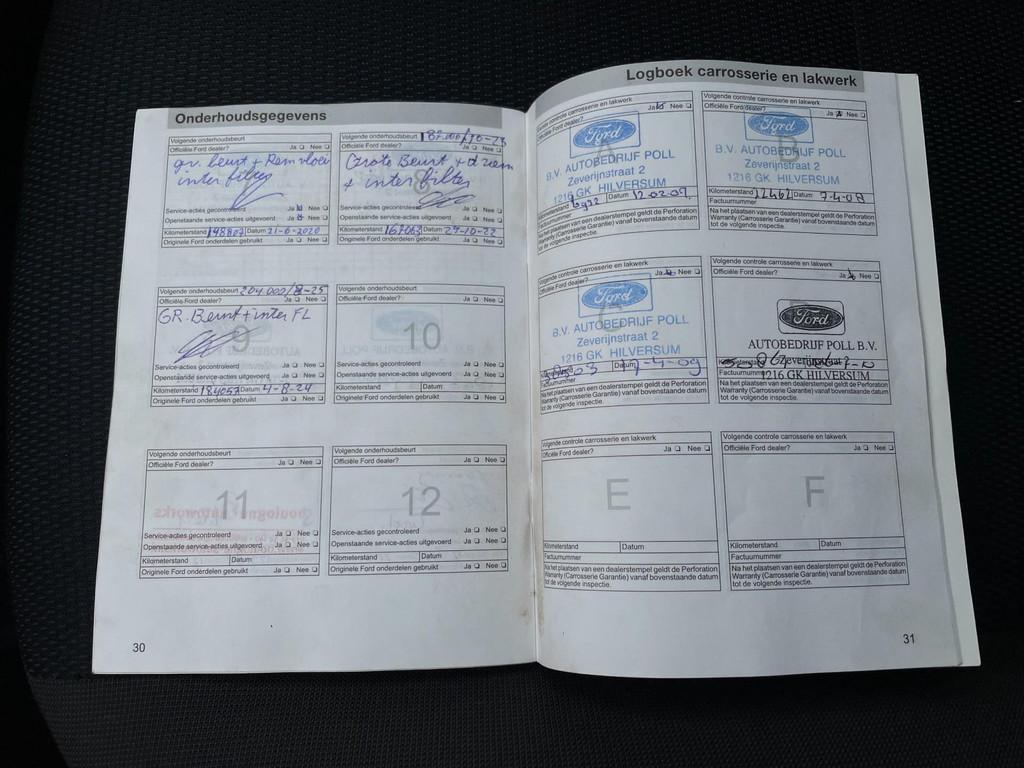 Onderhoudsgegevens
Volgende onderhoudsbeurt
Officiële Ford dealer? Ja Nee
gr. beurt + Remvloei
inter filter
Service-acties gecontroleerd Ja Nee
Openstaande service-acties uitgevoerd Ja Nee
Kilometerstand 148807 Datum 21-6-2020
Originele Ford onderdelen gebruikt Ja Nee
Volgende onderhoudsbeurt 187.000/10-23
Officiële Ford dealer? Ja Nee
Grote Beurt + d riem
8
+ inter filter
Service-acties gecontroleerd Ja Nee
Openstaande service-acties uitgevoerd Ja Nee
Kilometerstand 167063 Datum 27-10-22
Originele Ford onderdelen gebruikt Ja Nee
Volgende onderhoudsbeurt 204.000/8-25
Officiële Ford dealer? Ja Nee
GR. Beurt + inter FL
9
Service-acties gecontroleerd Ja Nee
Openstaande service-acties uitgevoerd Ja Nee
Kilometerstand 184057 Datum 4-8-24
Originele Ford onderdelen gebruikt Ja Nee
Volgende onderhoudsbeurt
Officiële Ford dealer? Ja Nee
10
Service-acties gecontroleerd Ja Nee
Openstaande service-acties uitgevoerd Ja Nee
Kilometerstand Datum
Originele Ford onderdelen gebruikt Ja Nee
Volgende onderhoudsbeurt
Officiële Ford dealer? Ja Nee
11
Service-acties gecontroleerd Ja Nee
Openstaande service-acties uitgevoerd Ja Nee
Kilometerstand Datum
Originele Ford onderdelen gebruikt Ja Nee
Volgende onderhoudsbeurt
Officiële Ford dealer? Ja Nee
12
Service-acties gecontroleerd Ja Nee
Openstaande service-acties uitgevoerd Ja Nee
Kilometerstand Datum
Originele Ford onderdelen gebruikt Ja Nee
30
Logboek carrosserie en lakwerk
Volgende controle carrosserie en lakwerk
Officiële Ford dealer? Ja Nee
Ford
A
B.V. AUTOBEDRIJF POLL
Zeverijnstraat 2
1216 GK HILVERSUM
Kilometerstand Datum 12-02-07
Factuurnummer
Na het plaatsen van een dealerstempel geldt de Perforation
Warranty (Carrosserie Garantie) vanaf bovenstaande datum
tot de volgende inspectie.
Volgende controle carrosserie en lakwerk
Officiële Ford dealer? Ja Nee
Ford
B
B.V. AUTOBEDRIJF POLL
Zeverijnstraat 2
1216 GK HILVERSUM
Kilometerstand 12462 Datum 7-4-08
Factuurnummer
Na het plaatsen van een dealerstempel geldt de Perforation
Warranty (Carrosserie Garantie) vanaf bovenstaande datum
tot de volgende inspectie.
Volgende controle carrosserie en lakwerk
Officiële Ford dealer? Ja Nee
Ford
C
B.V. AUTOBEDRIJF POLL
Zeverijnstraat 2
1216 GK HILVERSUM
Datum
Factuurnummer
Na het plaatsen van een dealerstempel geldt de Perforation
Warranty (Carrosserie Garantie) vanaf bovenstaande datum
tot de volgende inspectie.
Volgende controle carrosserie en lakwerk
Officiële Ford dealer? Ja Nee
Ford
AUTOBEDRIJF POLL B.V.
Factuurnummer 1216 GK HILVERSUM
Na het plaatsen van een dealerstempel geldt de Perforation
Warranty (Carrosserie Garantie) vanaf bovenstaande datum
tot de volgende inspectie.
Volgende controle carrosserie en lakwerk
Officiële Ford dealer? Ja Nee
E
Kilometerstand Datum
Factuurnummer
Na het plaatsen van een dealerstempel geldt de Perforation
Warranty (Carrosserie Garantie) vanaf bovenstaande datum
tot de volgende inspectie.
Volgende controle carrosserie en lakwerk
Officiële Ford dealer? Ja Nee
F
Kilometerstand Datum
Factuurnummer
Na het plaatsen van een dealerstempel geldt de Perforation
Warranty (Carrosserie Garantie) vanaf bovenstaande datum
tot de volgende inspectie.
31